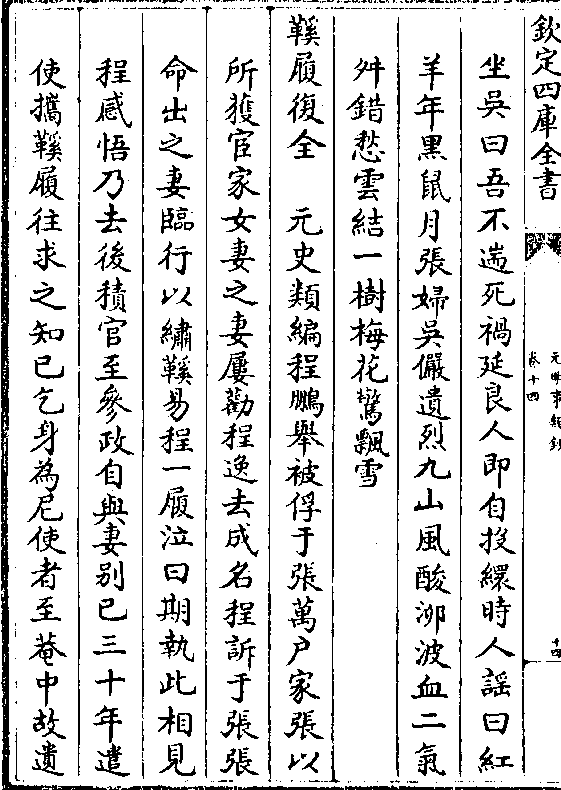 欽定四庫全書
元明事類鈔
卷十四
十四
坐吳曰吾不遄死禍延良人即自投繯時人謡曰紅
羊年黒鼠月張婦吳儼遺烈九山風酸泖波血二氣
舛錯愁雲結一樹梅花驚飄雪
鞵履復全　元史類編程鵬舉被俘于張萬户家張以
所獲宦家女妻之妻屢勸程逸去成名程訴于張張
命出之妻臨行以繡鞵易程一履泣曰期執此相見
程感悟乃去後積官至參政自與妻别已三十年遣
使攜鞵履往求之知已乞身為尼使者至菴中故遺